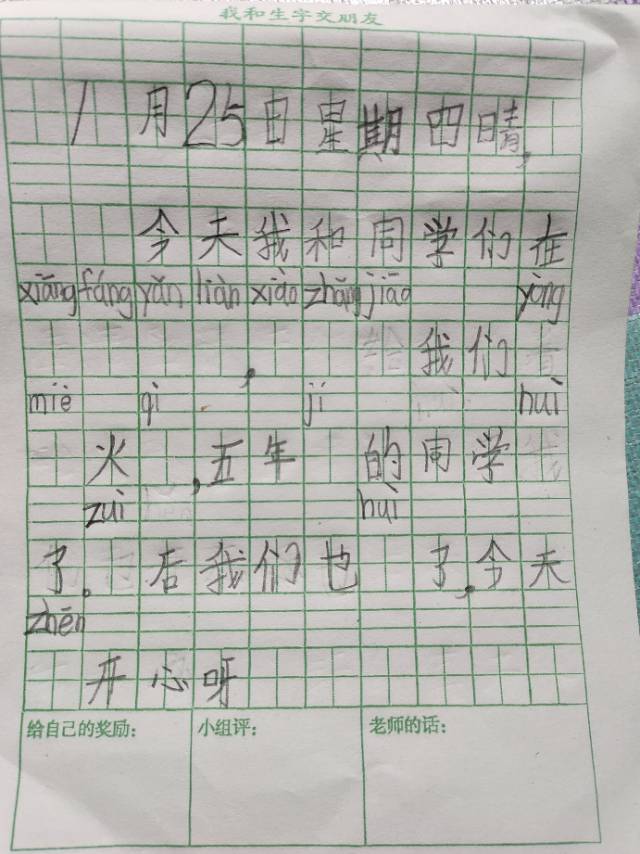 我和生字交朋友
1月25日星期四晴,
今天我和同学们在
xiāng fáng yǎn liàn xiào zhǎng jiāo yòng
,我们
miè qì jī huì
火,五年的同学
zuì huì
了。后我们也了,今天
zhēn
开心呀
给自己的奖励: 小组评: 老师的话: